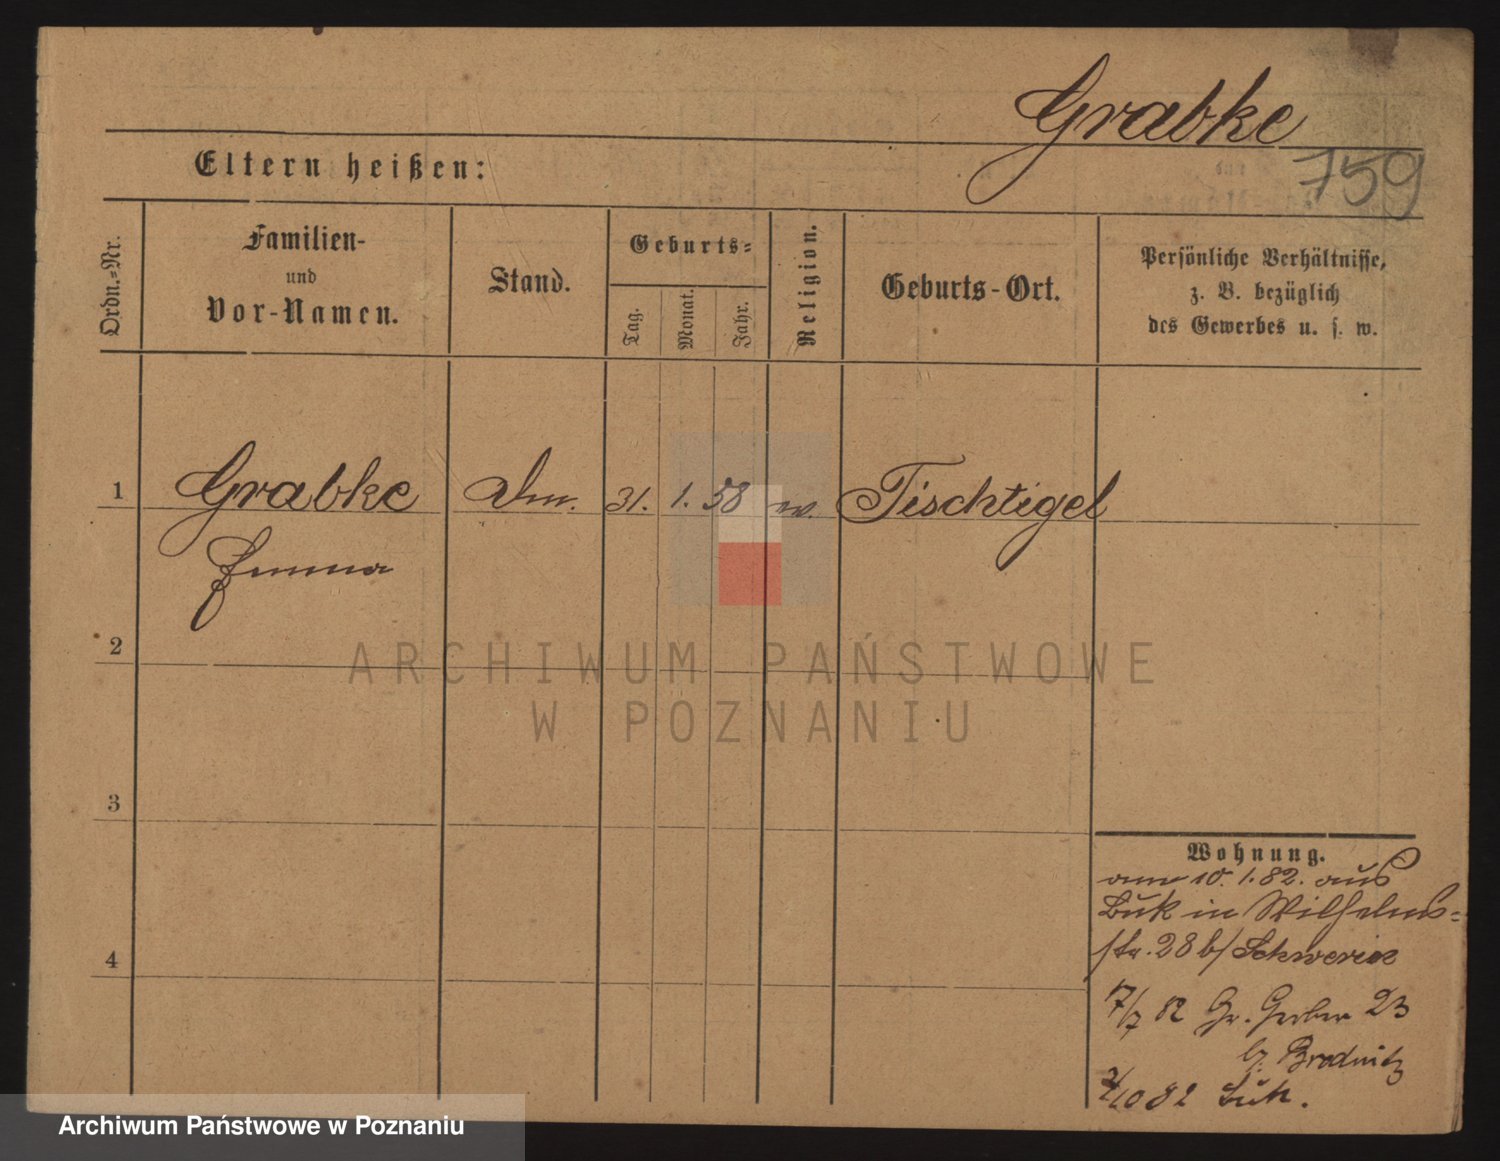 Grabke
759
Eltern heißen:
Ordn.=Nr.
Familien-
und
Vor-Namen.
Stand.
Geburts=
Tag.
Monat.
Jahr.
Religion.
Geburts-Ort.
Persönliche Verhältnisse,
z. B. bezüglich
des Gewerbes u. s. w.
1
Grabke
31.
1.
58
Tischtigel
Emma
2
ARCHIWUM PAŃSTWOWE
W POZNANIU
3
Wohnung.
am 10.1.82. aus
Buk in Wilhelms=
str. 28 b/ Schwerin
4
17/7 82 Gr. Gerber 23
b. Brodnitz
2/10 82 Buk.
Archiwum Państwowe w Poznaniu